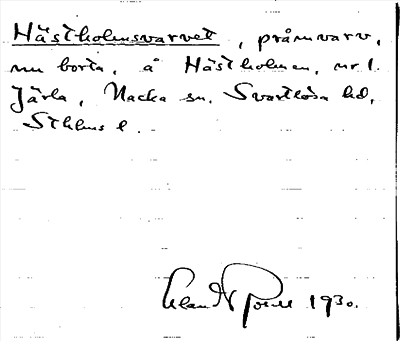 Hästholmsvarvet, pråmvarv,
nu borta, å Hästholmen, nr 1.
Järla, Nacka sn. Svartlösa hd,
Sthlms l.
1930.